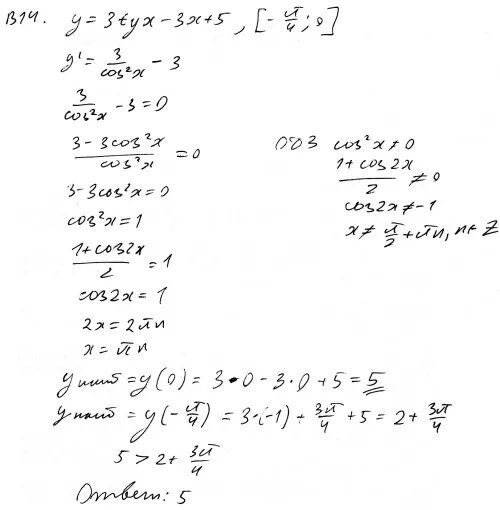 B14. y = 3tgx - 3x + 5, [-π/4; 0]
y' = 3/cos²x - 3
3/cos²x - 3 = 0
(3 - 3cos²x)/cos²x = 0
ОДЗ cos²x ≠ 0
(1 + cos2x)/2 ≠ 0
cos2x ≠ -1
x ≠ π/2 + πn, n ∈ Z
3 - 3cos²x = 0
cos²x = 1
(1 + cos2x)/2 = 1
cos2x = 1
2x = 2πn
x = πn
y наиб = y(0) = 3·0 - 3·0 + 5 = 5
y наиб = y(-π/4) = 3·(-1) + 3π/4 + 5 = 2 + 3π/4
5 > 2 + 3π/4
Ответ: 5